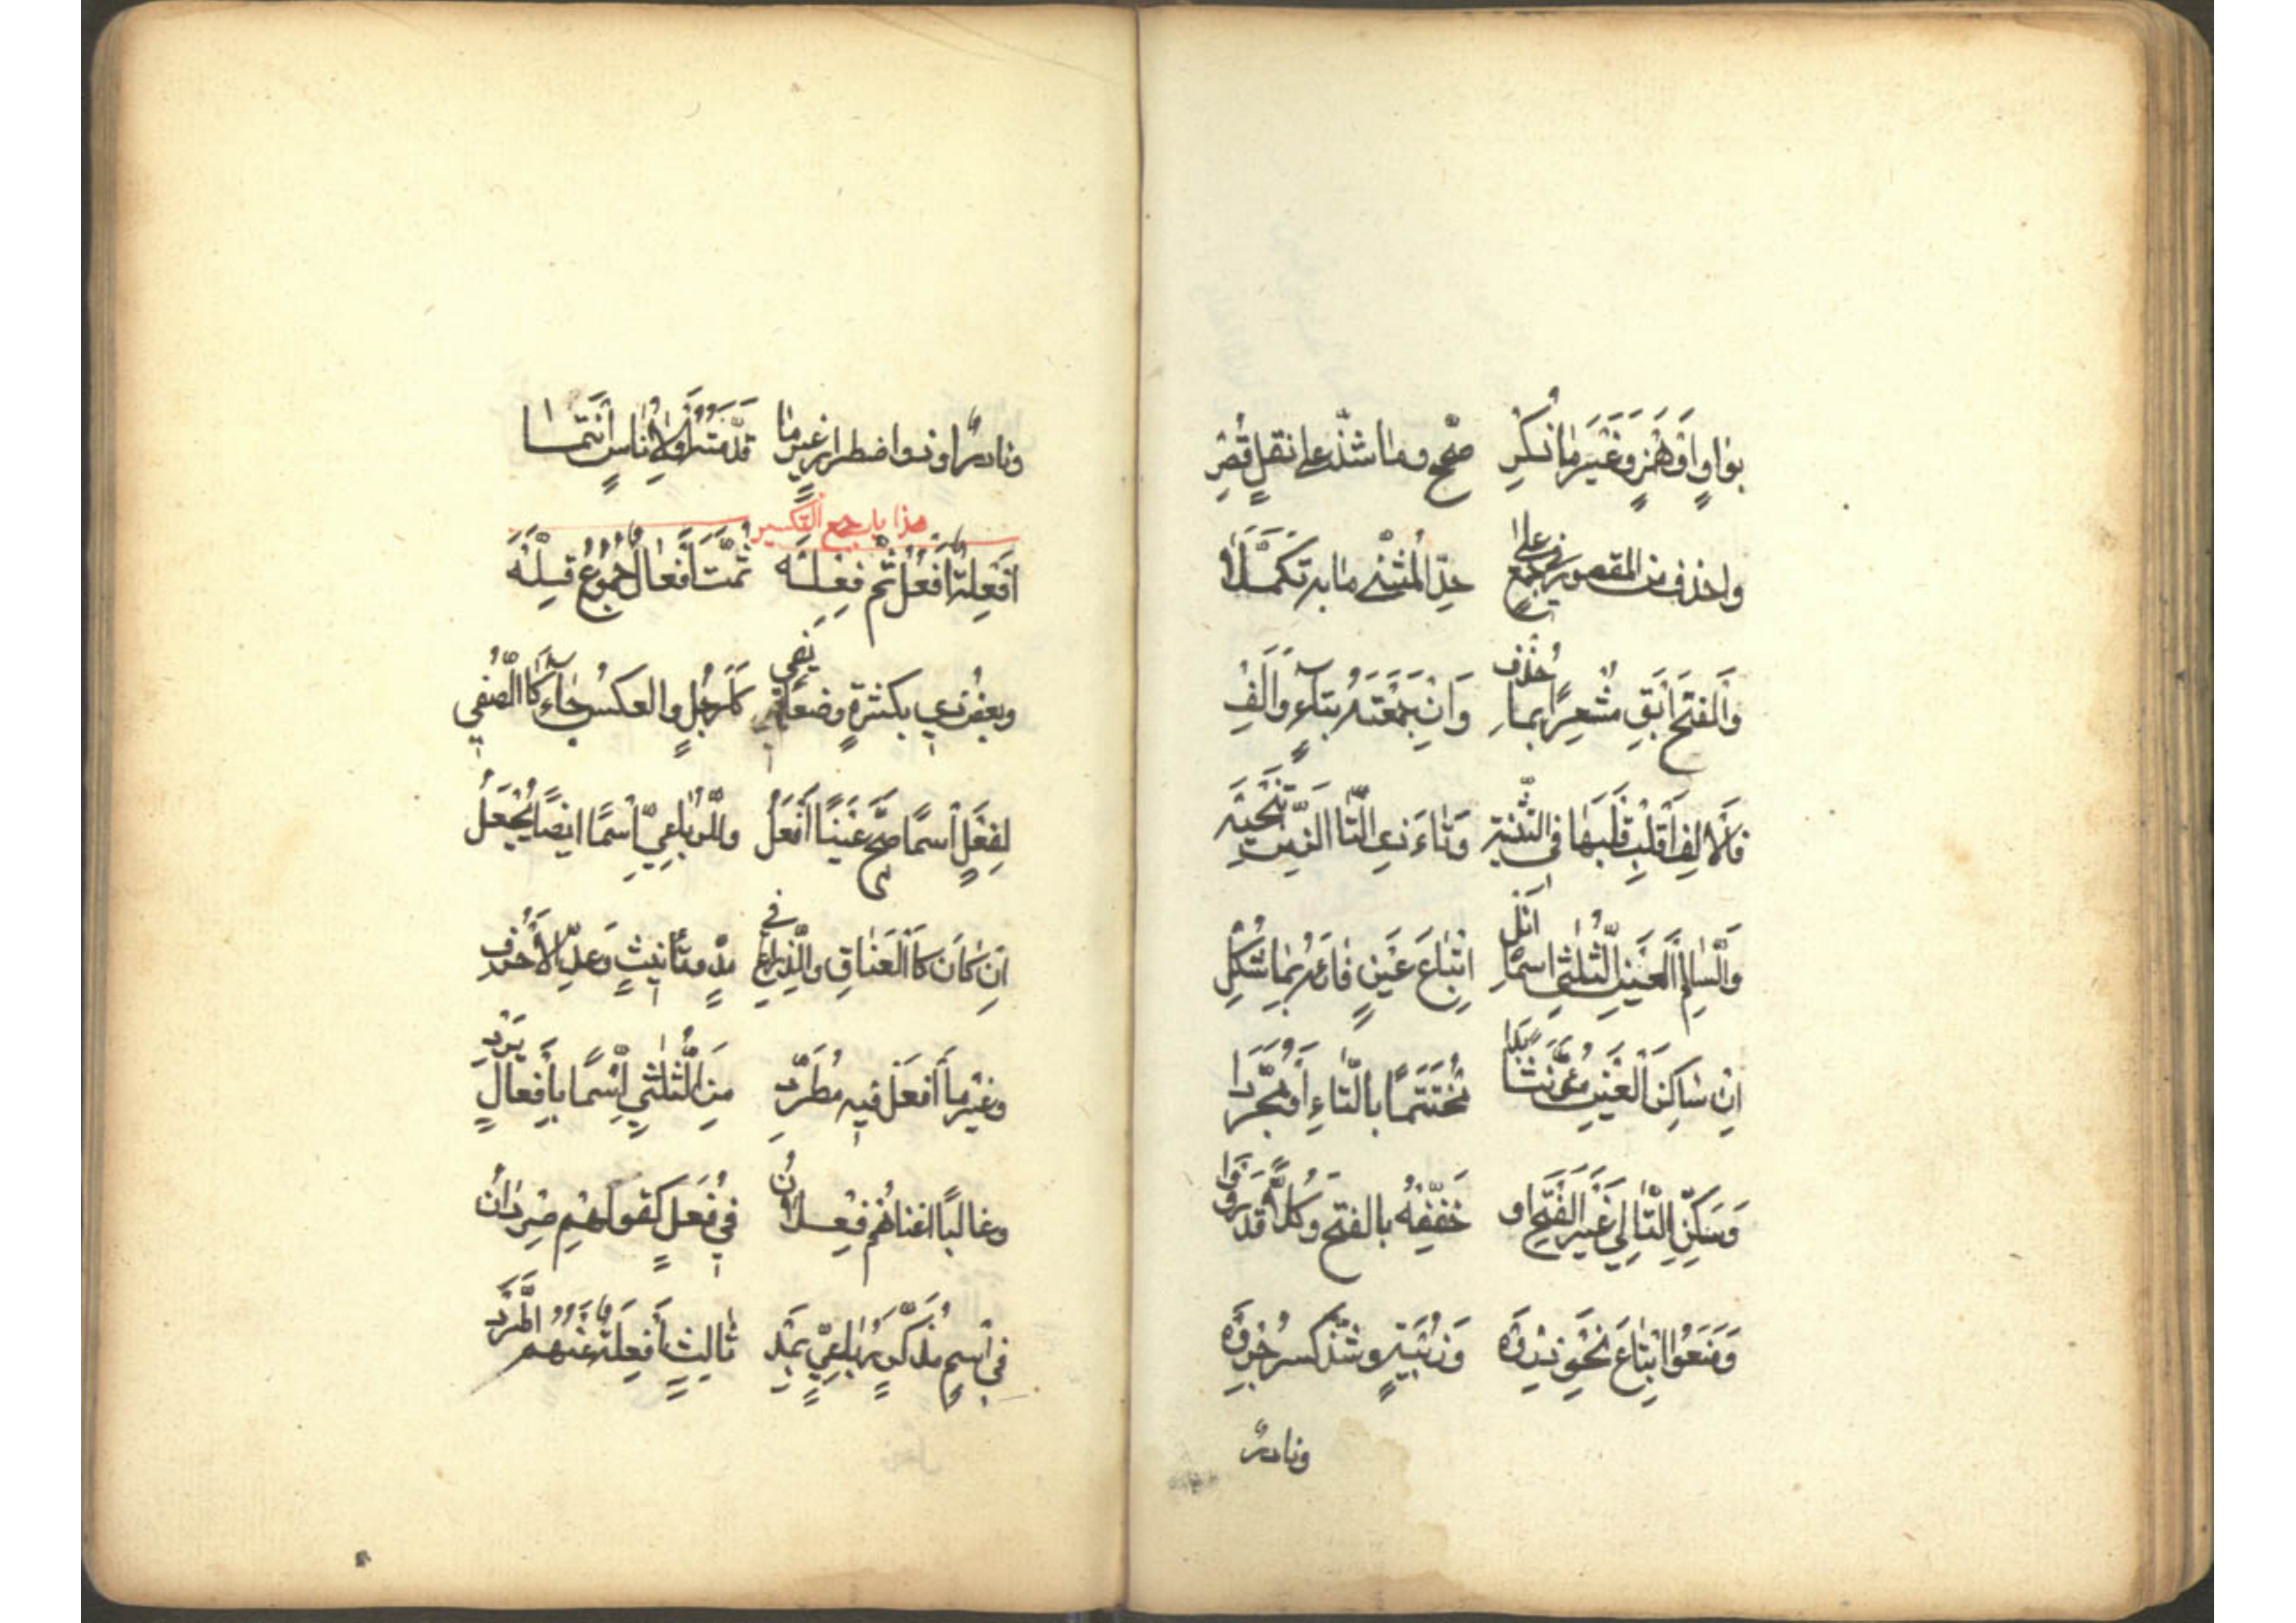 بِوَاوٍ اَوْ هَمْزٍ وَغَيْرَ مَا ذُكِرْ صَحِّحْ وَمَا شَذَّ عَلَى نَقْلٍ قُصِرْ
وَاحْذِفْ مِنَ الْمَقْصُورِ فِي جَمْعٍ عَلَى حَدِّ الْمُثَنَّى مَا بِهِ تَكَمَّلَا
وَالْفَتْحَ اَبْقِ مُشْعِرًا بِمَا حُذِفْ وَاِنْ جَمَعْتَهُ بِتَاءٍ وَاَلِفْ
فَالْاَلِفَ اقْلِبْ قَلْبَهَا فِي التَّثْنِيَهْ وَتَاءَ ذِي التَّا اَلْزِمَنَّ تَنْحِيَهْ
وَالسَّالِمَ الْعَيْنِ الثُّلَاثِي اسْمًا اَنِلْ اِتْبَاعَ عَيْنٍ فَاءَهُ بِمَا شُكِلْ
اِنْ سَاكِنَ الْعَيْنِ مُؤَنَّثًا بَدَا مُخْتَتَمًا بِالتَّاءِ اَوْ مُجَرَّدَا
وَسَكِّنِ التَّالِيَ غَيْرَ الْفَتْحِ اَوْ خَفِّفْهُ بِالْفَتْحِ وَكُلًّا قَدْ رَوَوْا
وَمَنَعُوا اِتْبَاعَ نَحْوِ ذِرْوَهْ وَزُبْيَةٍ وَشَذَّ كَسْرُ جِرْوَهْ
وَنَادِرٌ
وَنَادِرٌ اَوْ ذُو اضْطِرَارٍ غَيْرُ مَا قَدَّمْتُهُ اَوْ لِاُنَاسٍ انْتَمَا
هذا باب جمع التكسير
اَفْعِلَةٌ اَفْعُلُ ثُمَّ فِعْلَهْ ثُمَّتَ اَفْعَالٌ جُمُوعُ قِلَّهْ
وَبَعْضُ ذِي بِكَثْرَةٍ وَضْعًا يَفِي كَاَرْجُلٍ وَالْعَكْسُ جَاءَ كَالصُّفِي
لِفَعْلٍ اسْمًا صَحَّ عَيْنًا اَفْعُلُ وَلِلرُّبَاعِيِّ اسْمًا ايْضًا يُجْعَلُ
اِنْ كَانَ كَالْعَنَاقِ وَالذِّرَاعِ فِي مَدٍّ وَتَأْنِيثٍ وَعَدِّ الْاَحْرُفِ
وَغَيْرُ مَا اَفْعُلُ فِيهِ مُطَّرِدْ مِنَ الثُّلَاثِي اسْمًا بِاَفْعَالٍ يَرِدْ
وَغَالِبًا اَغْنَاهُمُ فِعْلَانُ فِي فُعَلٍ كَقَوْلِهِمْ صِرْدَانُ
فِي اسْمٍ مُذَكَّرٍ رُبَاعِيٍّ بِمَدْ ثَالِثٍ اَفْعِلَةُ عَنْهُمُ اطَّرَدْ